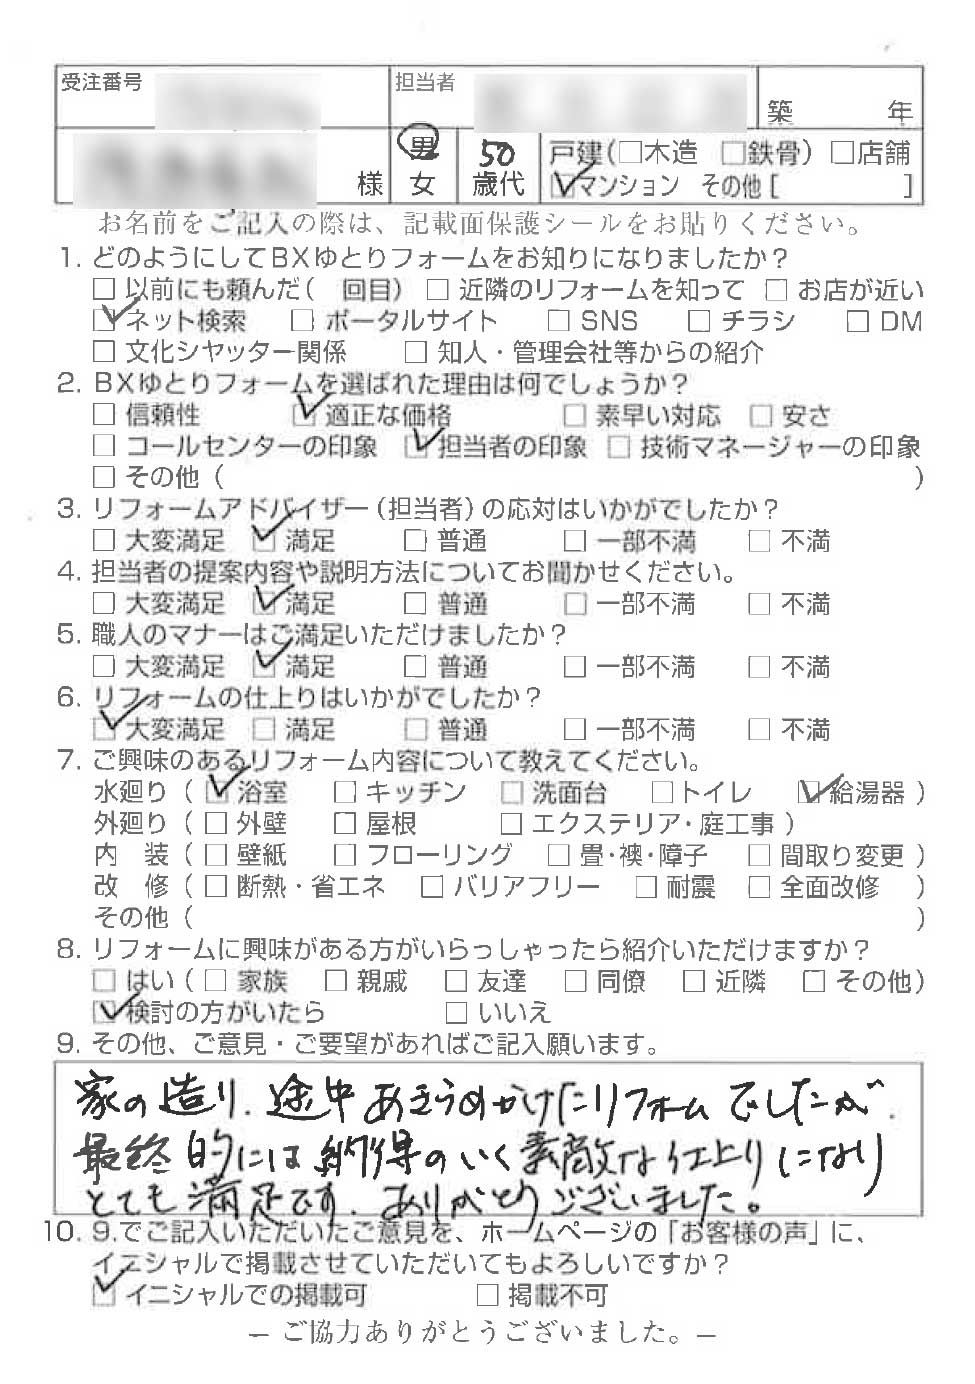 受注番号 担当者 築 年
様 男 女 50 歳代 戸建(□木造 □鉄骨) □店舗
☑マンション その他[ ]
お名前をご記入の際は、記載面保護シールをお貼りください。
1. どのようにしてBXゆとりフォームをお知りになりましたか?
□ 以前にも頼んだ( 回目) □ 近隣のリフォームを知って □ お店が近い
☑ ネット検索 □ ポータルサイト □ SNS □ チラシ □ DM
□ 文化シヤッター関係 □ 知人・管理会社等からの紹介
2. BXゆとりフォームを選ばれた理由は何でしょうか?
□ 信頼性 ☑ 適正な価格 □ 素早い対応 □ 安さ
□ コールセンターの印象 ☑ 担当者の印象 □ 技術マネージャーの印象
□ その他 ( )
3. リフォームアドバイザー(担当者)の応対はいかがでしたか?
□ 大変満足 ☑ 満足 □ 普通 □ 一部不満 □ 不満
4. 担当者の提案内容や説明方法についてお聞かせください。
□ 大変満足 ☑ 満足 □ 普通 □ 一部不満 □ 不満
5. 職人のマナーはご満足いただけましたか?
□ 大変満足 ☑ 満足 □ 普通 □ 一部不満 □ 不満
6. リフォームの仕上りはいかがでしたか?
☑ 大変満足 □ 満足 □ 普通 □ 一部不満 □ 不満
7. ご興味のあるリフォーム内容について教えてください。
水廻り ( ☑ 浴室 □ キッチン □ 洗面台 □ トイレ ☑ 給湯器 )
外廻り ( □ 外壁 □ 屋根 □ エクステリア・庭工事 )
内 装 ( □ 壁紙 □ フローリング □ 畳・襖・障子 □ 間取り変更 )
改 修 ( □ 断熱・省エネ □ バリアフリー □ 耐震 □ 全面改修 )
その他 ( )
8. リフォームに興味がある方がいらっしゃったら紹介いただけますか?
□ はい ( □ 家族 □ 親戚 □ 友達 □ 同僚 □ 近隣 □ その他)
☑ 検討の方がいたら □ いいえ
9. その他、ご意見・ご要望があればご記入願います。
家の造り、途中あきらめかけたリフォームでしたが、
最終的には納得のいく素敵な仕上りになり
とても満足です。ありがとうございました。
10. 9.でご記入いただいたご意見を、ホームページの「お客様の声」に、
イニシャルで掲載させていただいてもよろしいですか?
☑ イニシャルでの掲載可 □ 掲載不可
− ご協力ありがとうございました。−